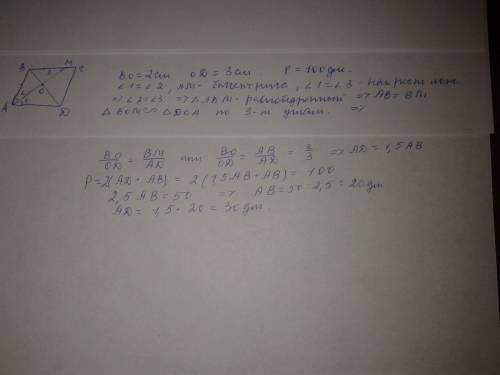 B M C
3
O
1 2
A D
BO = 2см OD = 3см. P = 100дм.
∠1 = ∠2, AM - биссектриса, ∠1 = ∠3 - накрест леж.
=> ∠2 = ∠3 => △ABM - равнобедренный => AB = BM
△BOM ~ △DOA по 3-м углам. =>
BO/OD = BM/AD или BO/OD = AB/AD = 2/3 => AD = 1,5 AB
P = 2(AD + AB) = 2(1,5AB + AB) = 100
2,5 AB = 50 => AB = 50 : 2,5 = 20дм
AD = 1,5 · 20 = 30дм.